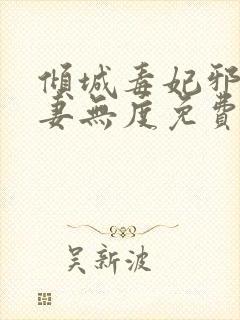 傾城毒妃邪
妻無度免費
吴新波